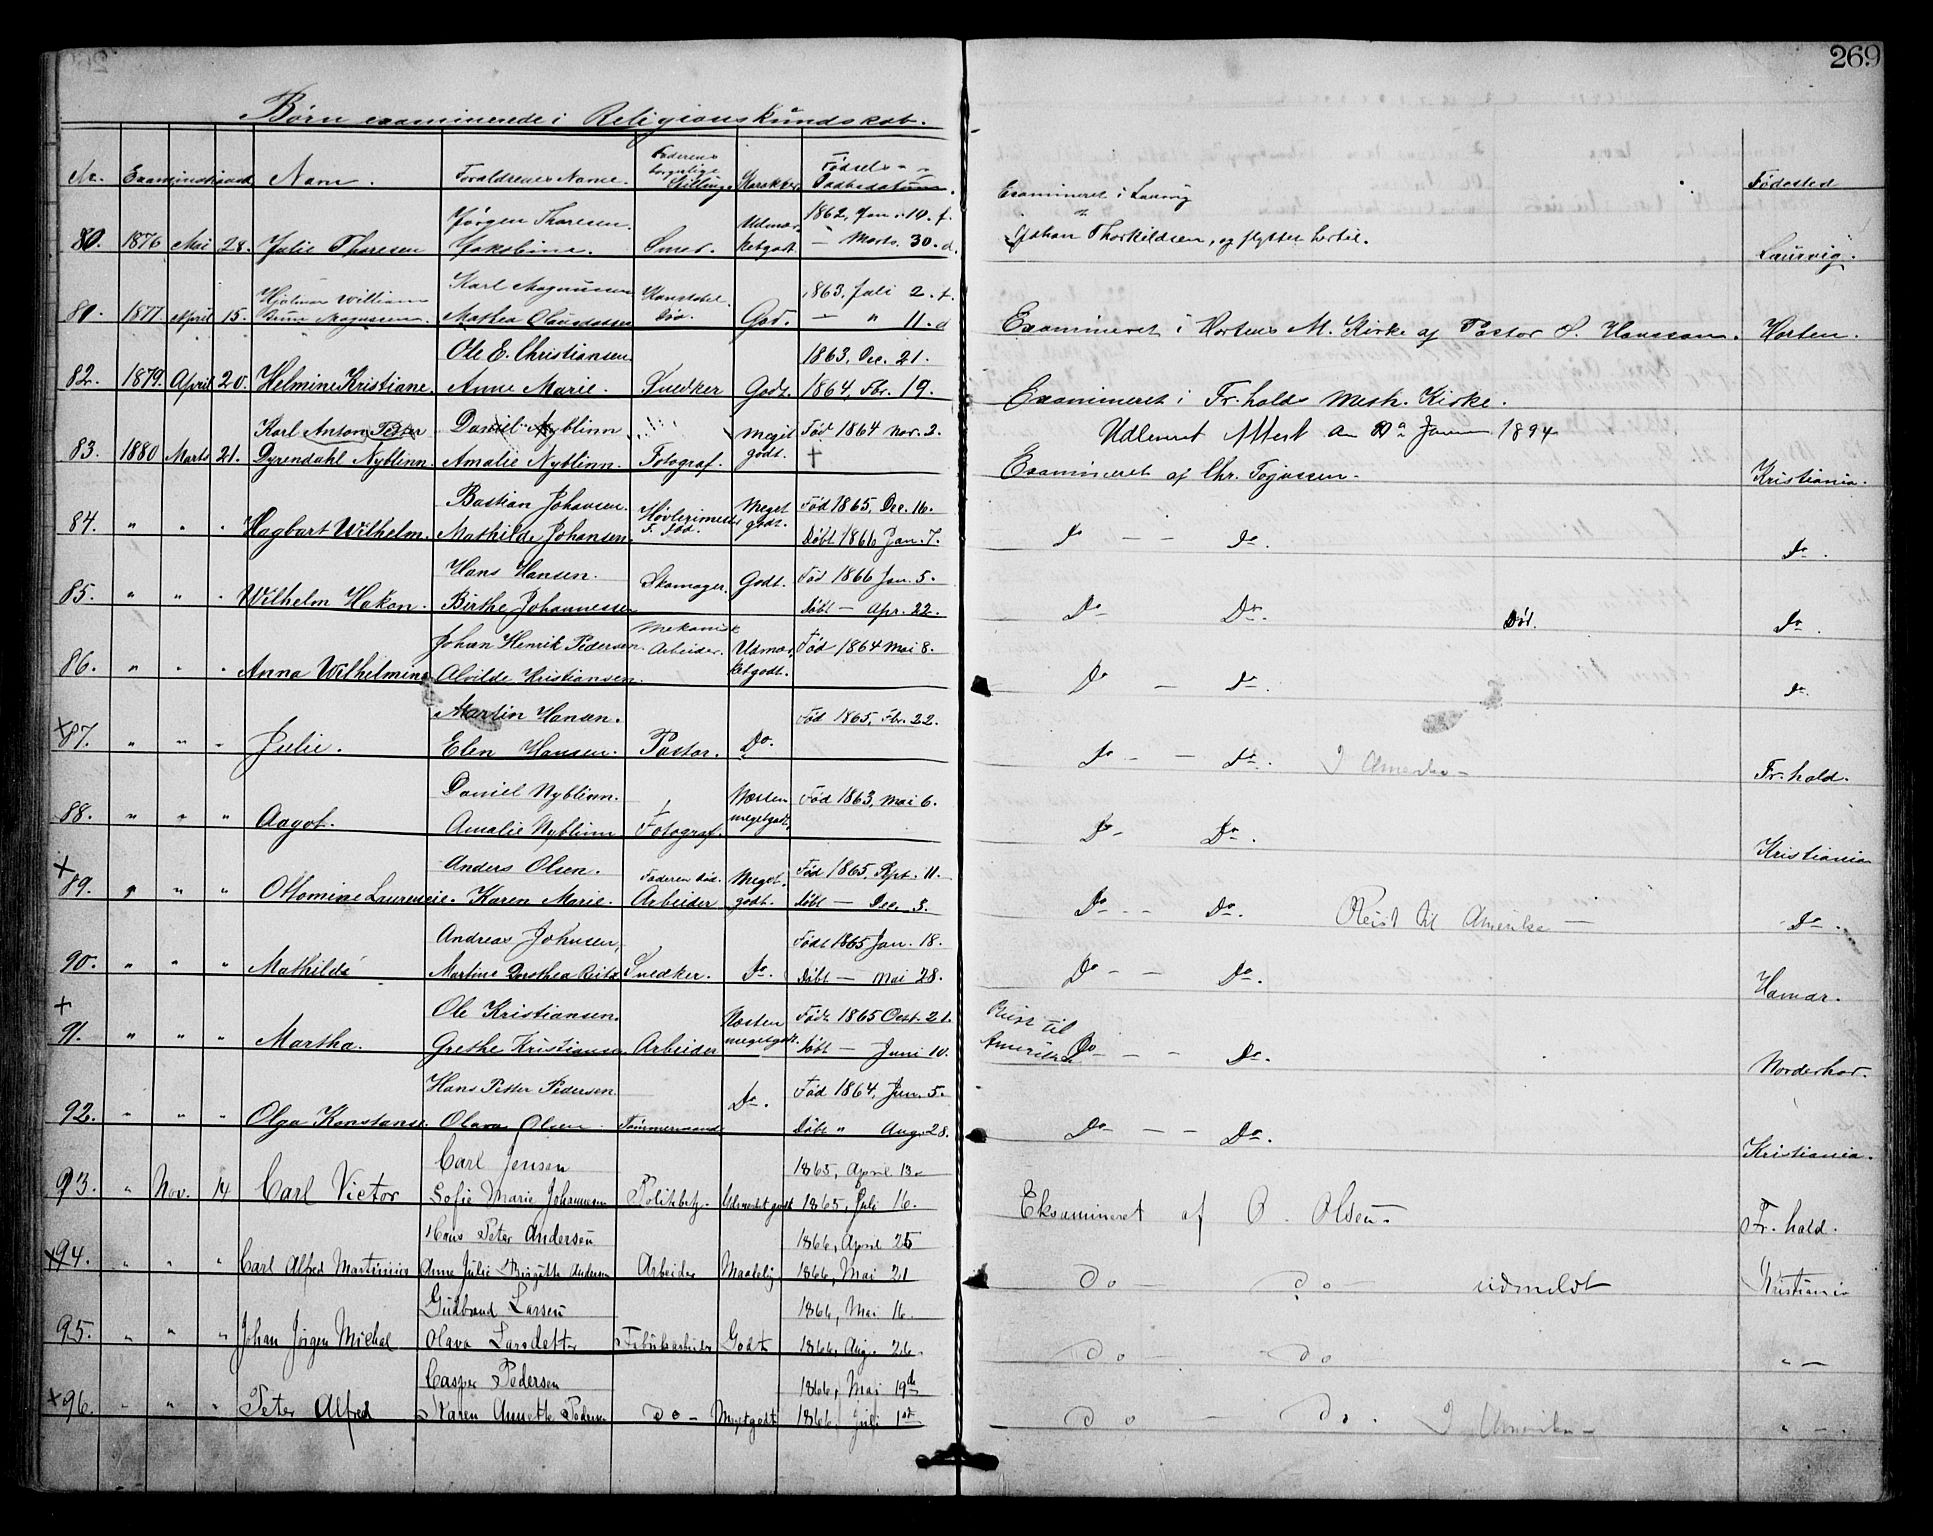 269
Børn examinerede i Religionskundskab.
Nr. Examinationsd Navn. Forældrenes Navne. Faderens borgerlige Stilling Karakter Fødsels- og Daabsdatum. Fødested
80. 1876 Mai 28. Julie Thoresen Jørgen Thoresen. Jakobine. Smed. Udmærketgodt. 1862, Jan. 10. f. — Marts. 30. d. Examineret i Laurvig af Johan Thorkildsen, og flyttet hertil. Laurvig.
81. 1877 April 15. Hjalmar William Magnussen. Karl Magnussen Mathea Olausdatter Konstabel. død. God. 1863. Juli 2. f. — " 11. d Examineret i Hortens M. Kirke af Pastor S. Hanssson. Horten.
82. 1879. April 20. Helmine Kristiane. Ole E. Christiansen. Anne Marie. Snedker Godt. 1863. Dec. 21. 1864, Fbr. 19. Examineret i Fr.halds Meth. Kirke.
Udleveret Attest Janu 1894
83. 1880 Marts 21. Karl Anton Peter Dyrendahl Nyblinn. Daniel Nyblinn Amalie Nyblinn. Fotograf. Meget godt. Fød 1864 Nov. 2. † Examineret af Chr. Torjussen. Kristiania.
84. " " " Hagbart Wilhelm. Bastian Johansen. Mathilde Johansen. Høvlerimester F. død. Meget godt. Fød 1865, Dec. 16. Døbt 1866 Jan. 7. Do — — Do. Do.
85. " " " Wilhelm Hakon. Hans Hansen. Birthe Johannessen Skomager. Godt. Fød 1866 Jan. 5. Døbt — Apr. 22. Do Do. Død. Do.
86. " " " Anna Wilhelmine Johan Henrik Pedersen. Alvilde Kristiansen. Mekanisk Arbeider. Udmærketgodt. Fød 1864 Mai 8. Do — Do. Do.
×87. " " " Julie. Martin Hansen. Elen Hansen. Pastor. Do. Fød 1865, Fbr. 22. Do — — Do. I Amerika — Fr.hald.
88. " " " Aagot. Daniel Nyblinn. Amalie Nyblinn † Fotograf. Næsten megetgodt. Fød 1863, Mai 6. Do — Do. Kristiania
×89. " " " Ottomine Laurensie. Anders Olsen. Karen Marie. Faderen død. Arbeider Meget godt. Fød 1865, Spt. 11. Døbt — Dec. 3. Do — — Do. Reist til Amerika — Do.
90. " " " Mathilde Andreas Johnsen, Martine Dorothea Snedker. Do. Født 1865 Jan. 18. Døbt — Mai 28. Do — — Do. Hamar.
+91. " " " Martha. Ole Kristiansen. Grethe Kristiansen Arbeider Næsten megetgodt. Født 1865 Oct. 21. Døbt — Juni 10. Reist til Amerika Do — — Do. Norderhov.
92. " " " Olga Konstanse. Hans Petter Pedersen. Olava Olsen Tømmermand Do. Fød 1864, Jun. 5. Døbt " Aug. 28. Do — — Do. Kristiania.
93. " Nov. 14 Carl Victor Carl Jensen Sofie Marie Johannesen Politibetj. Udmærket godt 1865, April 13. 1865, Juli 16. Eksamineret af O. Olsen. Fr. hald.
×94. " " " Carl Alfred Martinius Hans Peter Andersen Anne Julie Birgitte Andersen Arbeider Maadelig 1866, April 25 1866, Mai 21 do — do — udmeldt Kristiania
95. " " " Johan Jørgen Michal Gudbrand Larsen Olava Larsdatter Fabrikarbeider Godt 1866, Mai 16. 1866, Aug. 26. do — do " —
×96. " " " Peter Alfred Casper Pedersen Karen Annette Pedersen do — Megetgodt 1866, Mai 19de 1866, Juli 1st do — do. I Amerika — " —.